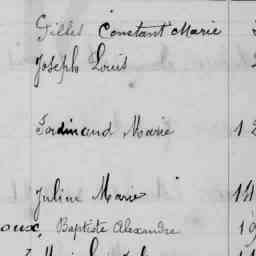 Gilles Constant Marie
Joseph Louis
Ferdinand Marie 12
Juline Marie 14
oux, Baptiste Alexandre 19